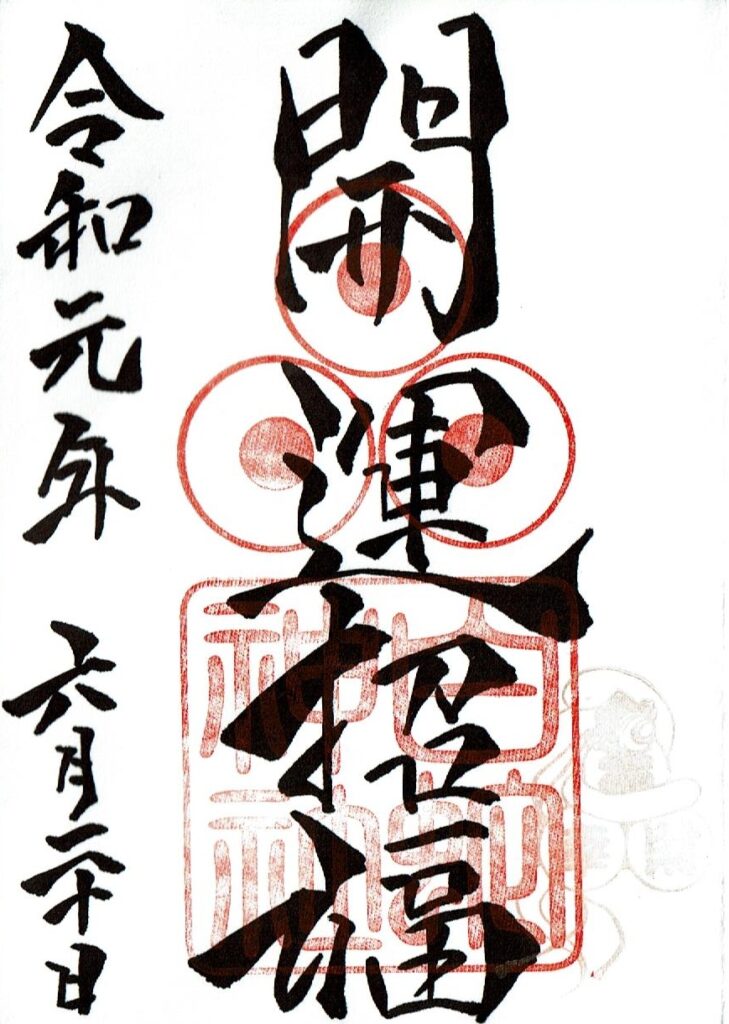 開運招福
白蛇
神社
令和元年 六月二十日